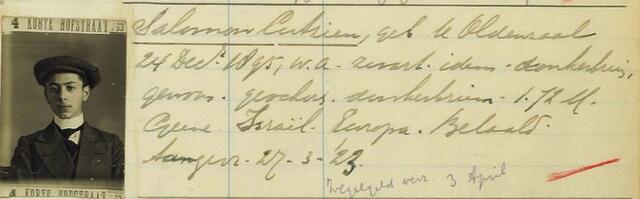 4 KORTE HOFSTRAAT
Salomon Cutrien, geb te Oldenzaal
24 Dec. 1895, w.a. zwart. idem. donkerbruin,
gewoon. geschor. donkerbruin. 1.72 M.
Geene. Israël. Europa. Betaald.
Aangevr. 27-3-23
Zegelgeld verz. 3 April
4 KORTE HOFSTRAAT